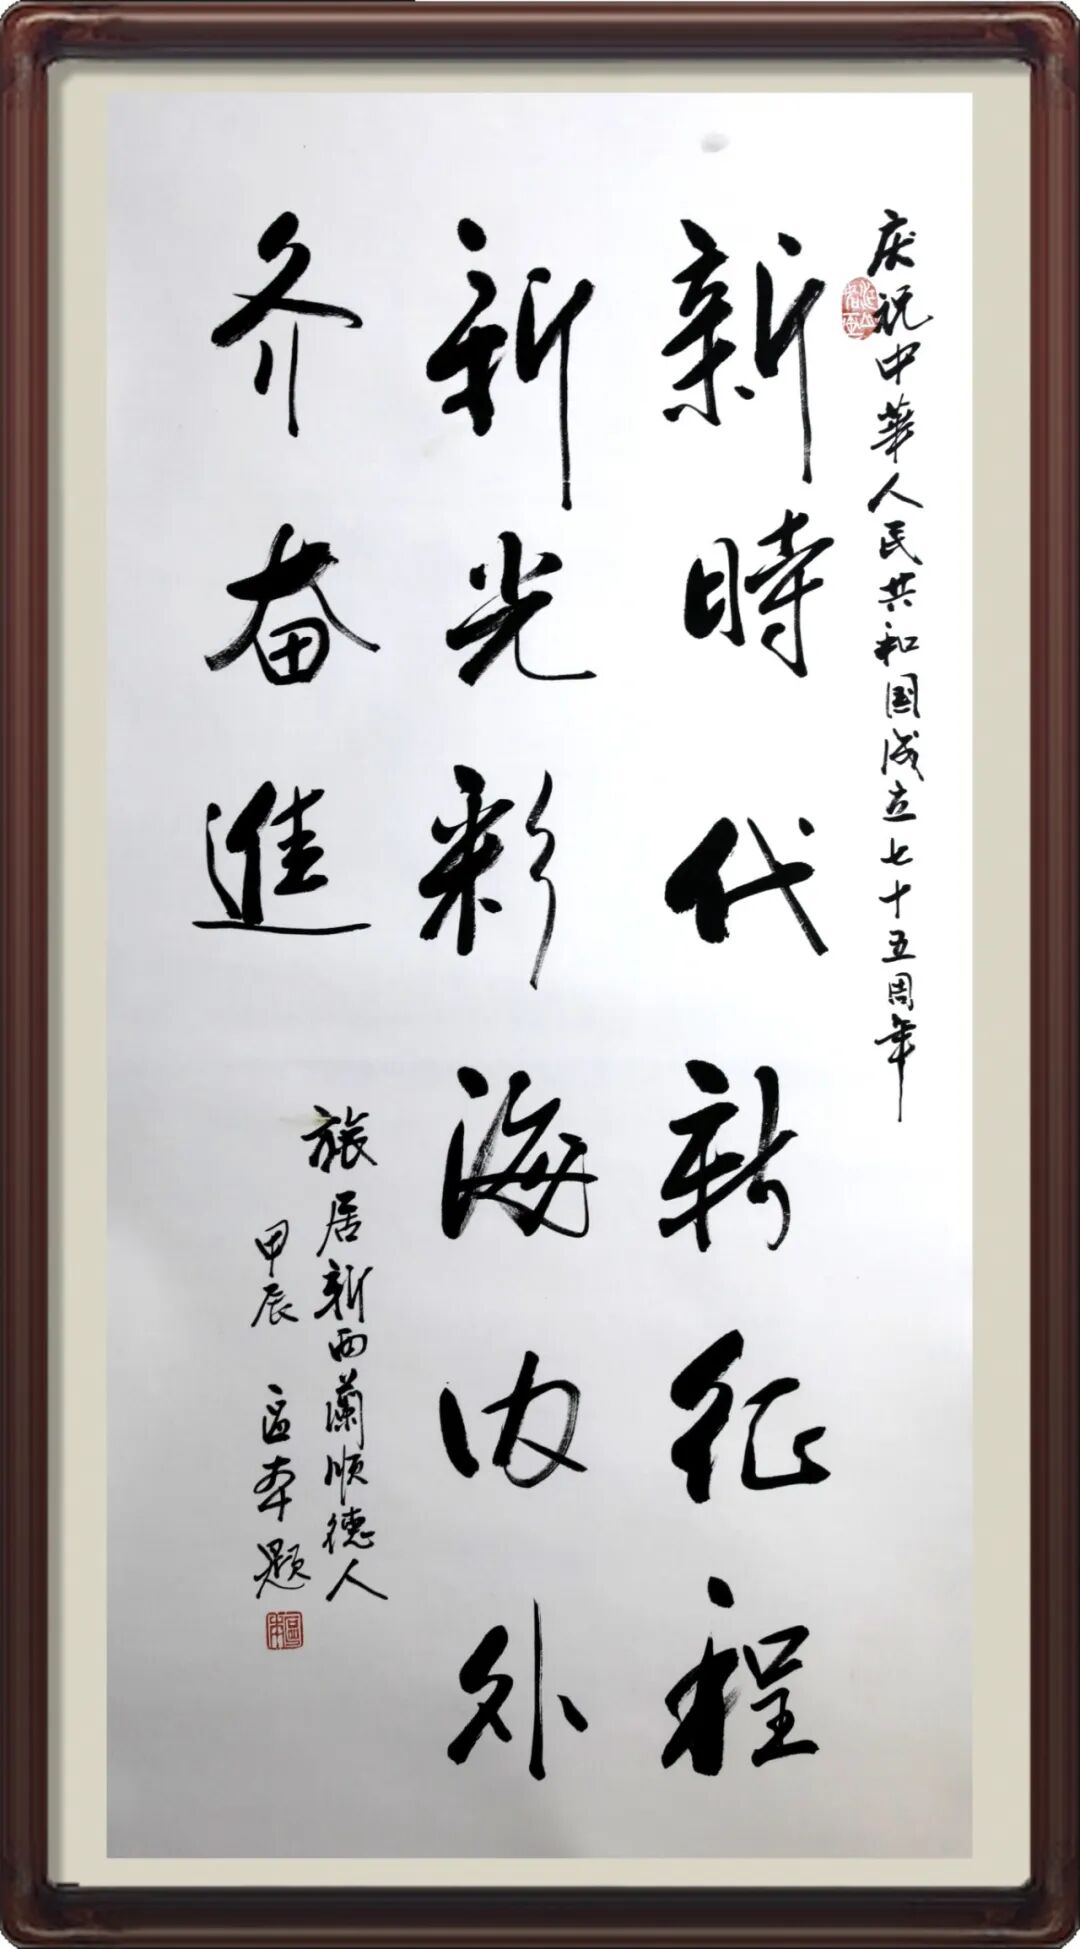 庆祝中華人民共和国成立七十五周年
新時代新征程
新光彩海内外
齐奋進
旅居新西蘭順德人
甲辰 区本題
区本